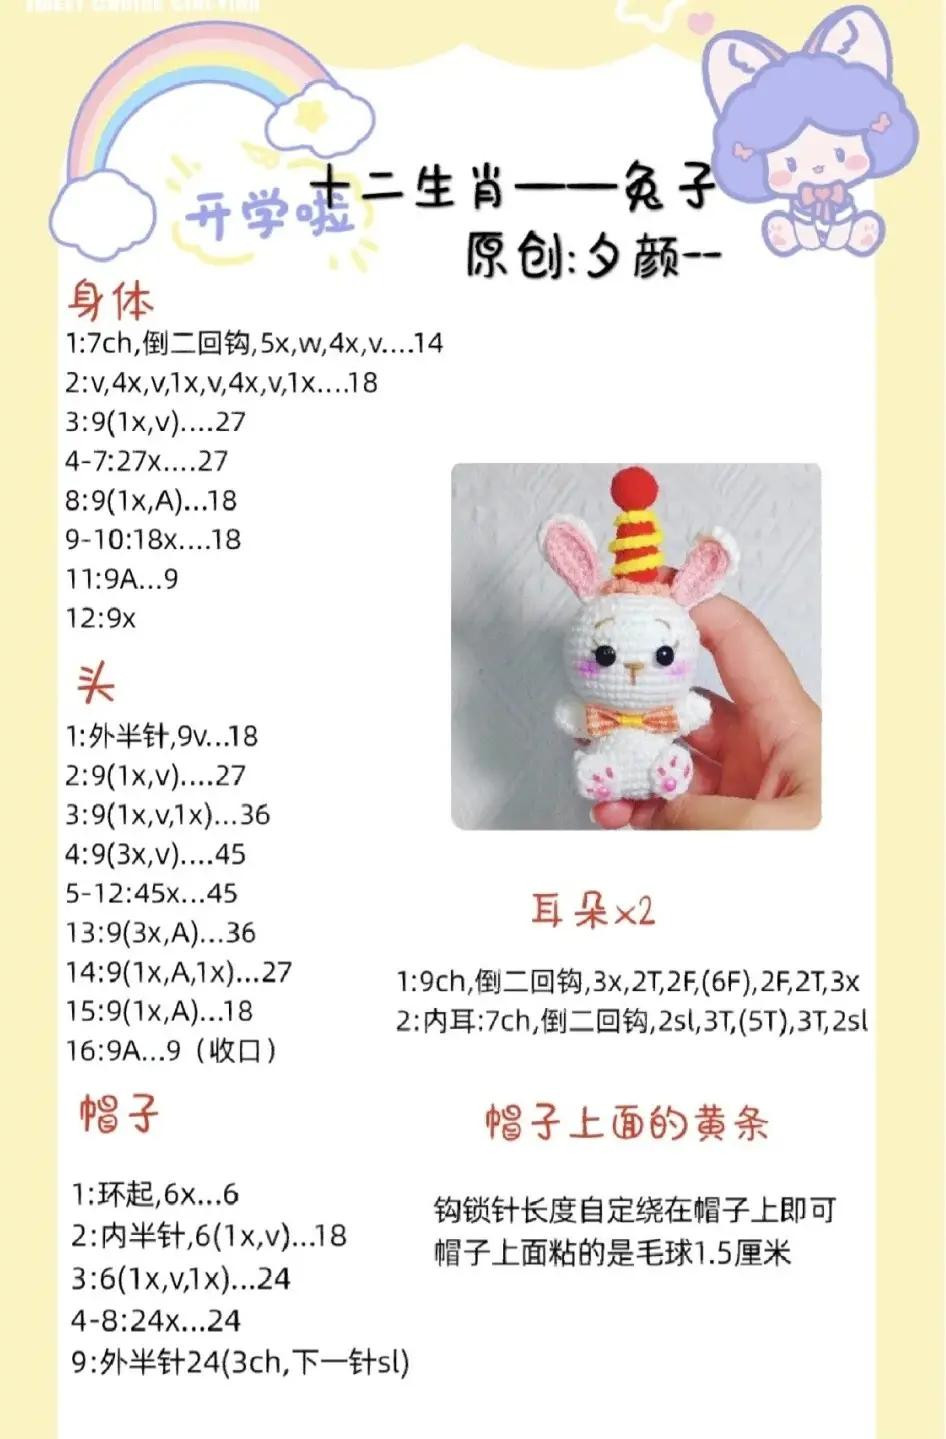 十二生肖——兔子
开学啦
原创:夕颜--
身体
1:7ch,倒二回钩,5x,w,4x,v....14
2:v,4x,v,1x,v,4x,v,1x....18
3:9(1x,v)....27
4-7:27x....27
8:9(1x,A)...18
9-10:18x....18
11:9A...9
12:9x
头
1:外半针,9v...18
2:9(1x,v)....27
3:9(1x,v,1x)...36
4:9(3x,v)....45
5-12:45x...45
13:9(3x,A)...36
14:9(1x,A,1x)...27
15:9(1x,A)...18
16:9A...9（收口）
耳朵x2
1:9ch,倒二回钩,3x,2T,2F,(6F),2F,2T,3x
2:内耳:7ch,倒二回钩,2sl,3T,(5T),3T,2sl
帽子
1:环起,6x...6
2:内半针,6(1x,v)...18
3:6(1x,v,1x)...24
4-8:24x...24
9:外半针24(3ch,下一针sl)
帽子上面的黄条
钩锁针长度自定绕在帽子上即可
帽子上面粘的是毛球1.5厘米